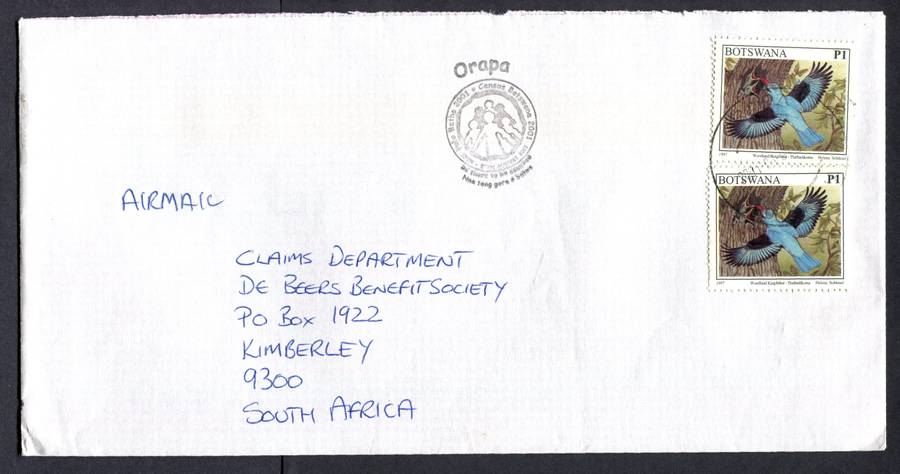 Orapa
Batho 2001 • Census Botswana 2001
Be there to be counted
Nna teng gore o balwe
BOTSWANA P1
1997 Woodland Kingfisher · Tlatlaedikoma Helena Schluter
BOTSWANA P1
1997 Woodland Kingfisher · Tlatlaedikoma Helena Schluter
AIRMAIL
CLAIMS DEPARTMENT
DE BEERS BENEFIT SOCIETY
PO BOX 1922
KIMBERLEY
9300
SOUTH AFRICA